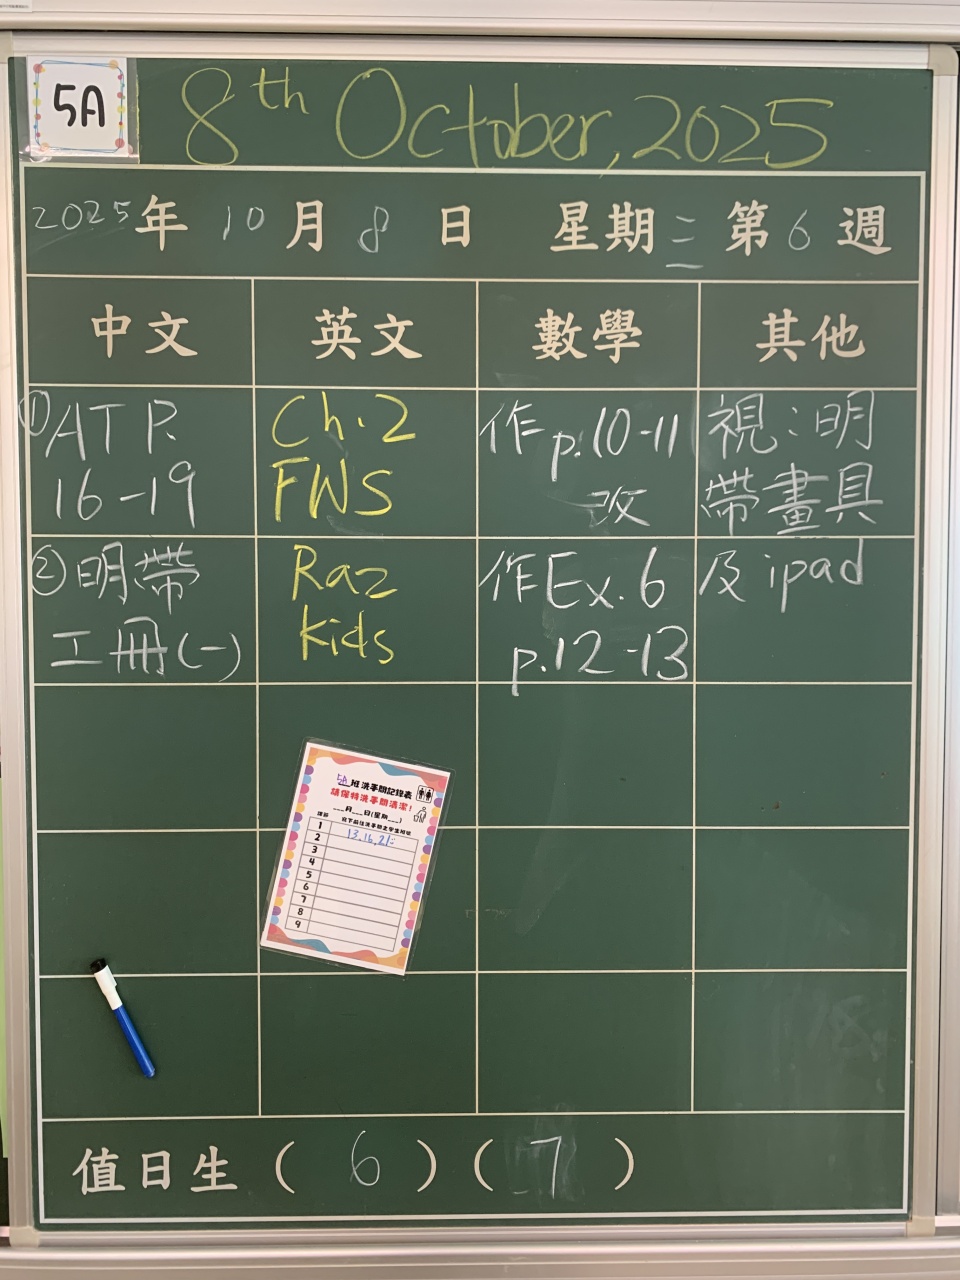 5A
8th October, 2025
2025年10月8日 星期三 第6週
中文 英文 數學 其他
①ATP.
16-19
Ch.2
FWS
作p.10-11
改
視:明
帶畫具
②明帶
工冊(一)
Raz
Kids
作Ex.6
p.12-13
及ipad
5A班洗手間記錄表
請保持洗手間清潔!
___月___日(星期___)
課節 在下面往洗手間之學生班號
1
2 13,16,21
3
4
5
6
7
8
9
值日生(6)(7)